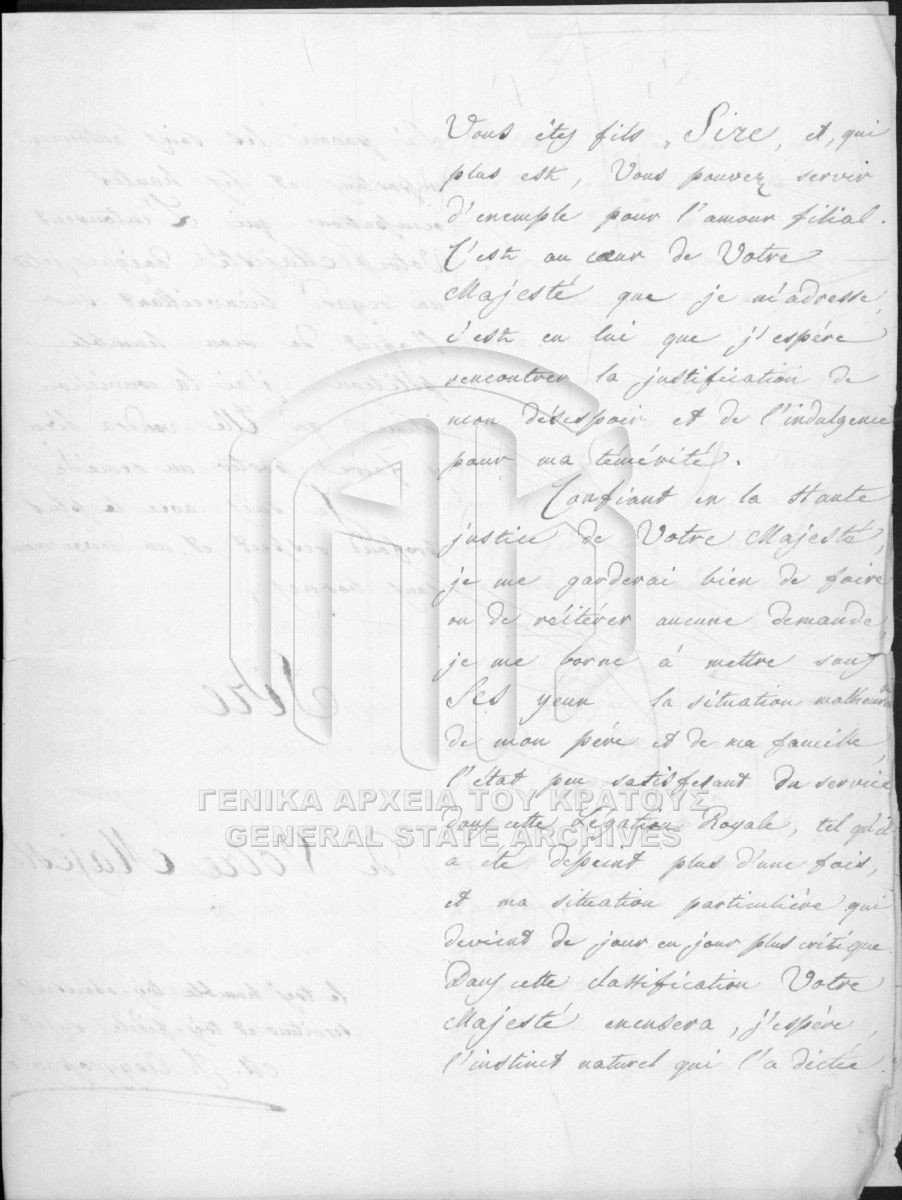 Vous êtes fils, Sire, et, qui
plus est, Vous pouvez servir
d'exemple pour l'amour filial.
C'est au cœur de Votre
Majesté que je m'adresse,
c'est en lui que j'espère
rencontrer la justification de
mon désespoir et de l'indulgence
pour ma témérité.
Confiant en la Haute
justice de Votre Majesté,
je me garderai bien de faire
ou de réitérer aucune demande
je me borne à mettre sous
SES yeux la situation malheureuse
de mon père et de ma famille,
l'état peu satisfesant du service
ΓΕΝΙΚΑ ΑΡΧΕΙΑ ΤΟΥ ΚΡΑΤΟΥΣ
dans cette Légation Royale, tel qu'il
GENERAL STATE ARCHIVES
a été dépeint plus d'une fois,
et ma situation particulière qui
devient de jour en jour plus critique.
Dans cette classification Votre
Majesté excusera, j'espère,
l'instinct naturel qui l'a dictée.